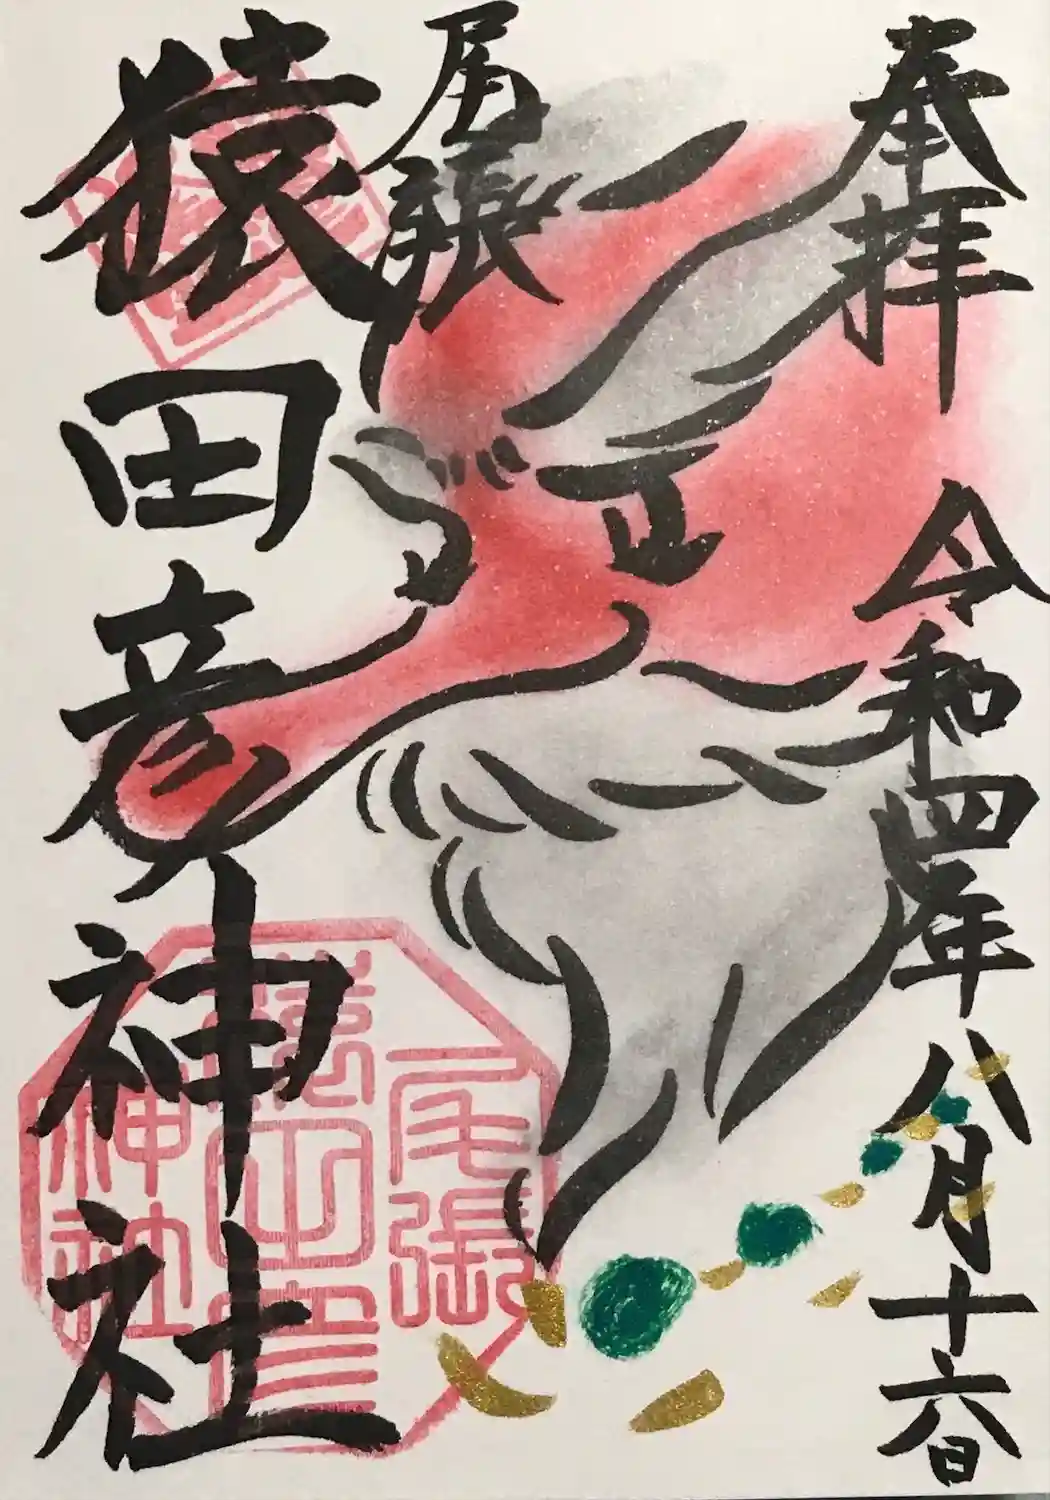 奉拝
令和四年八月十六日
尾張
猿田彦神社
尾張
猿田彦
神社